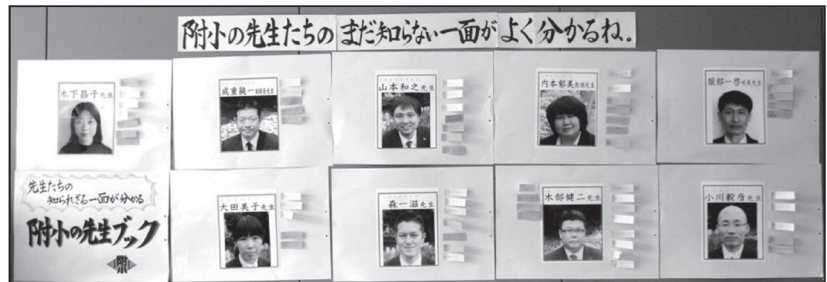 附小の先生たちの まだ知らない一面が よく分かるね。
木下昌子先生
成重純一副校長先生
山本和之先生
内本郁美教頭先生
服部一啓校長先生
先生たちの
知られざる一面が分かる
附小の先生ブック
大田美子先生
森一滋先生
木部健二先生
小川毅彦先生